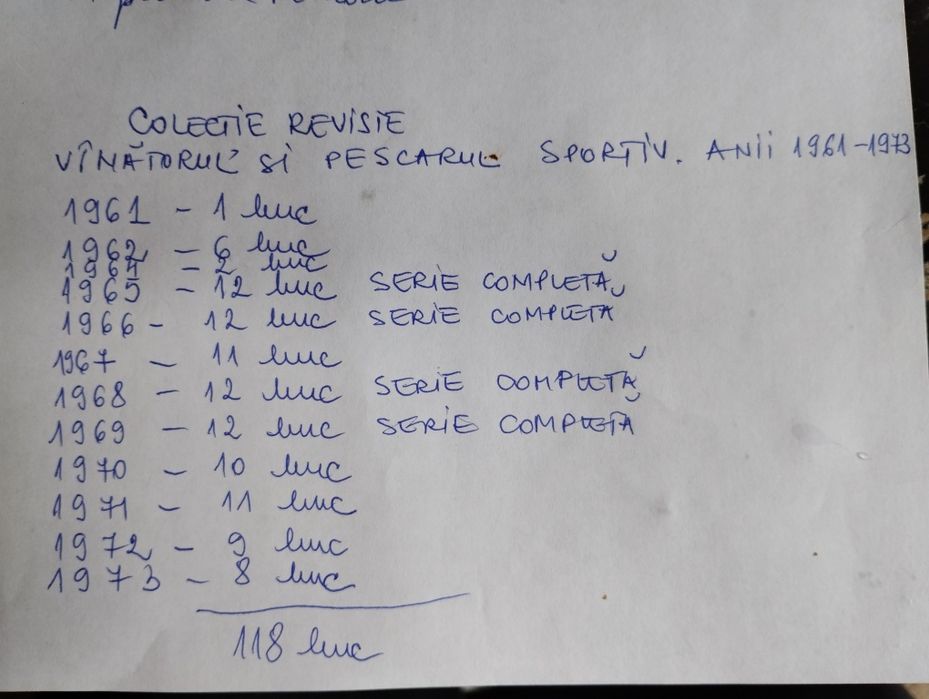 COLECTIE REVISTE
VÎNĂTORUL SI PESCARUL SPORTIV. ANII 1961-1973
1961 - 1 buc
1962 - 6 buc
1964 - 2 buc
1965 - 12 buc SERIE COMPLETĂ
1966 - 12 buc SERIE COMPLETĂ
1967 - 11 buc
1968 - 12 buc SERIE COMPLETĂ
1969 - 12 buc SERIE COMPLETĂ
1970 - 10 buc
1971 - 11 buc
1972 - 9 buc
1973 - 8 buc
118 buc